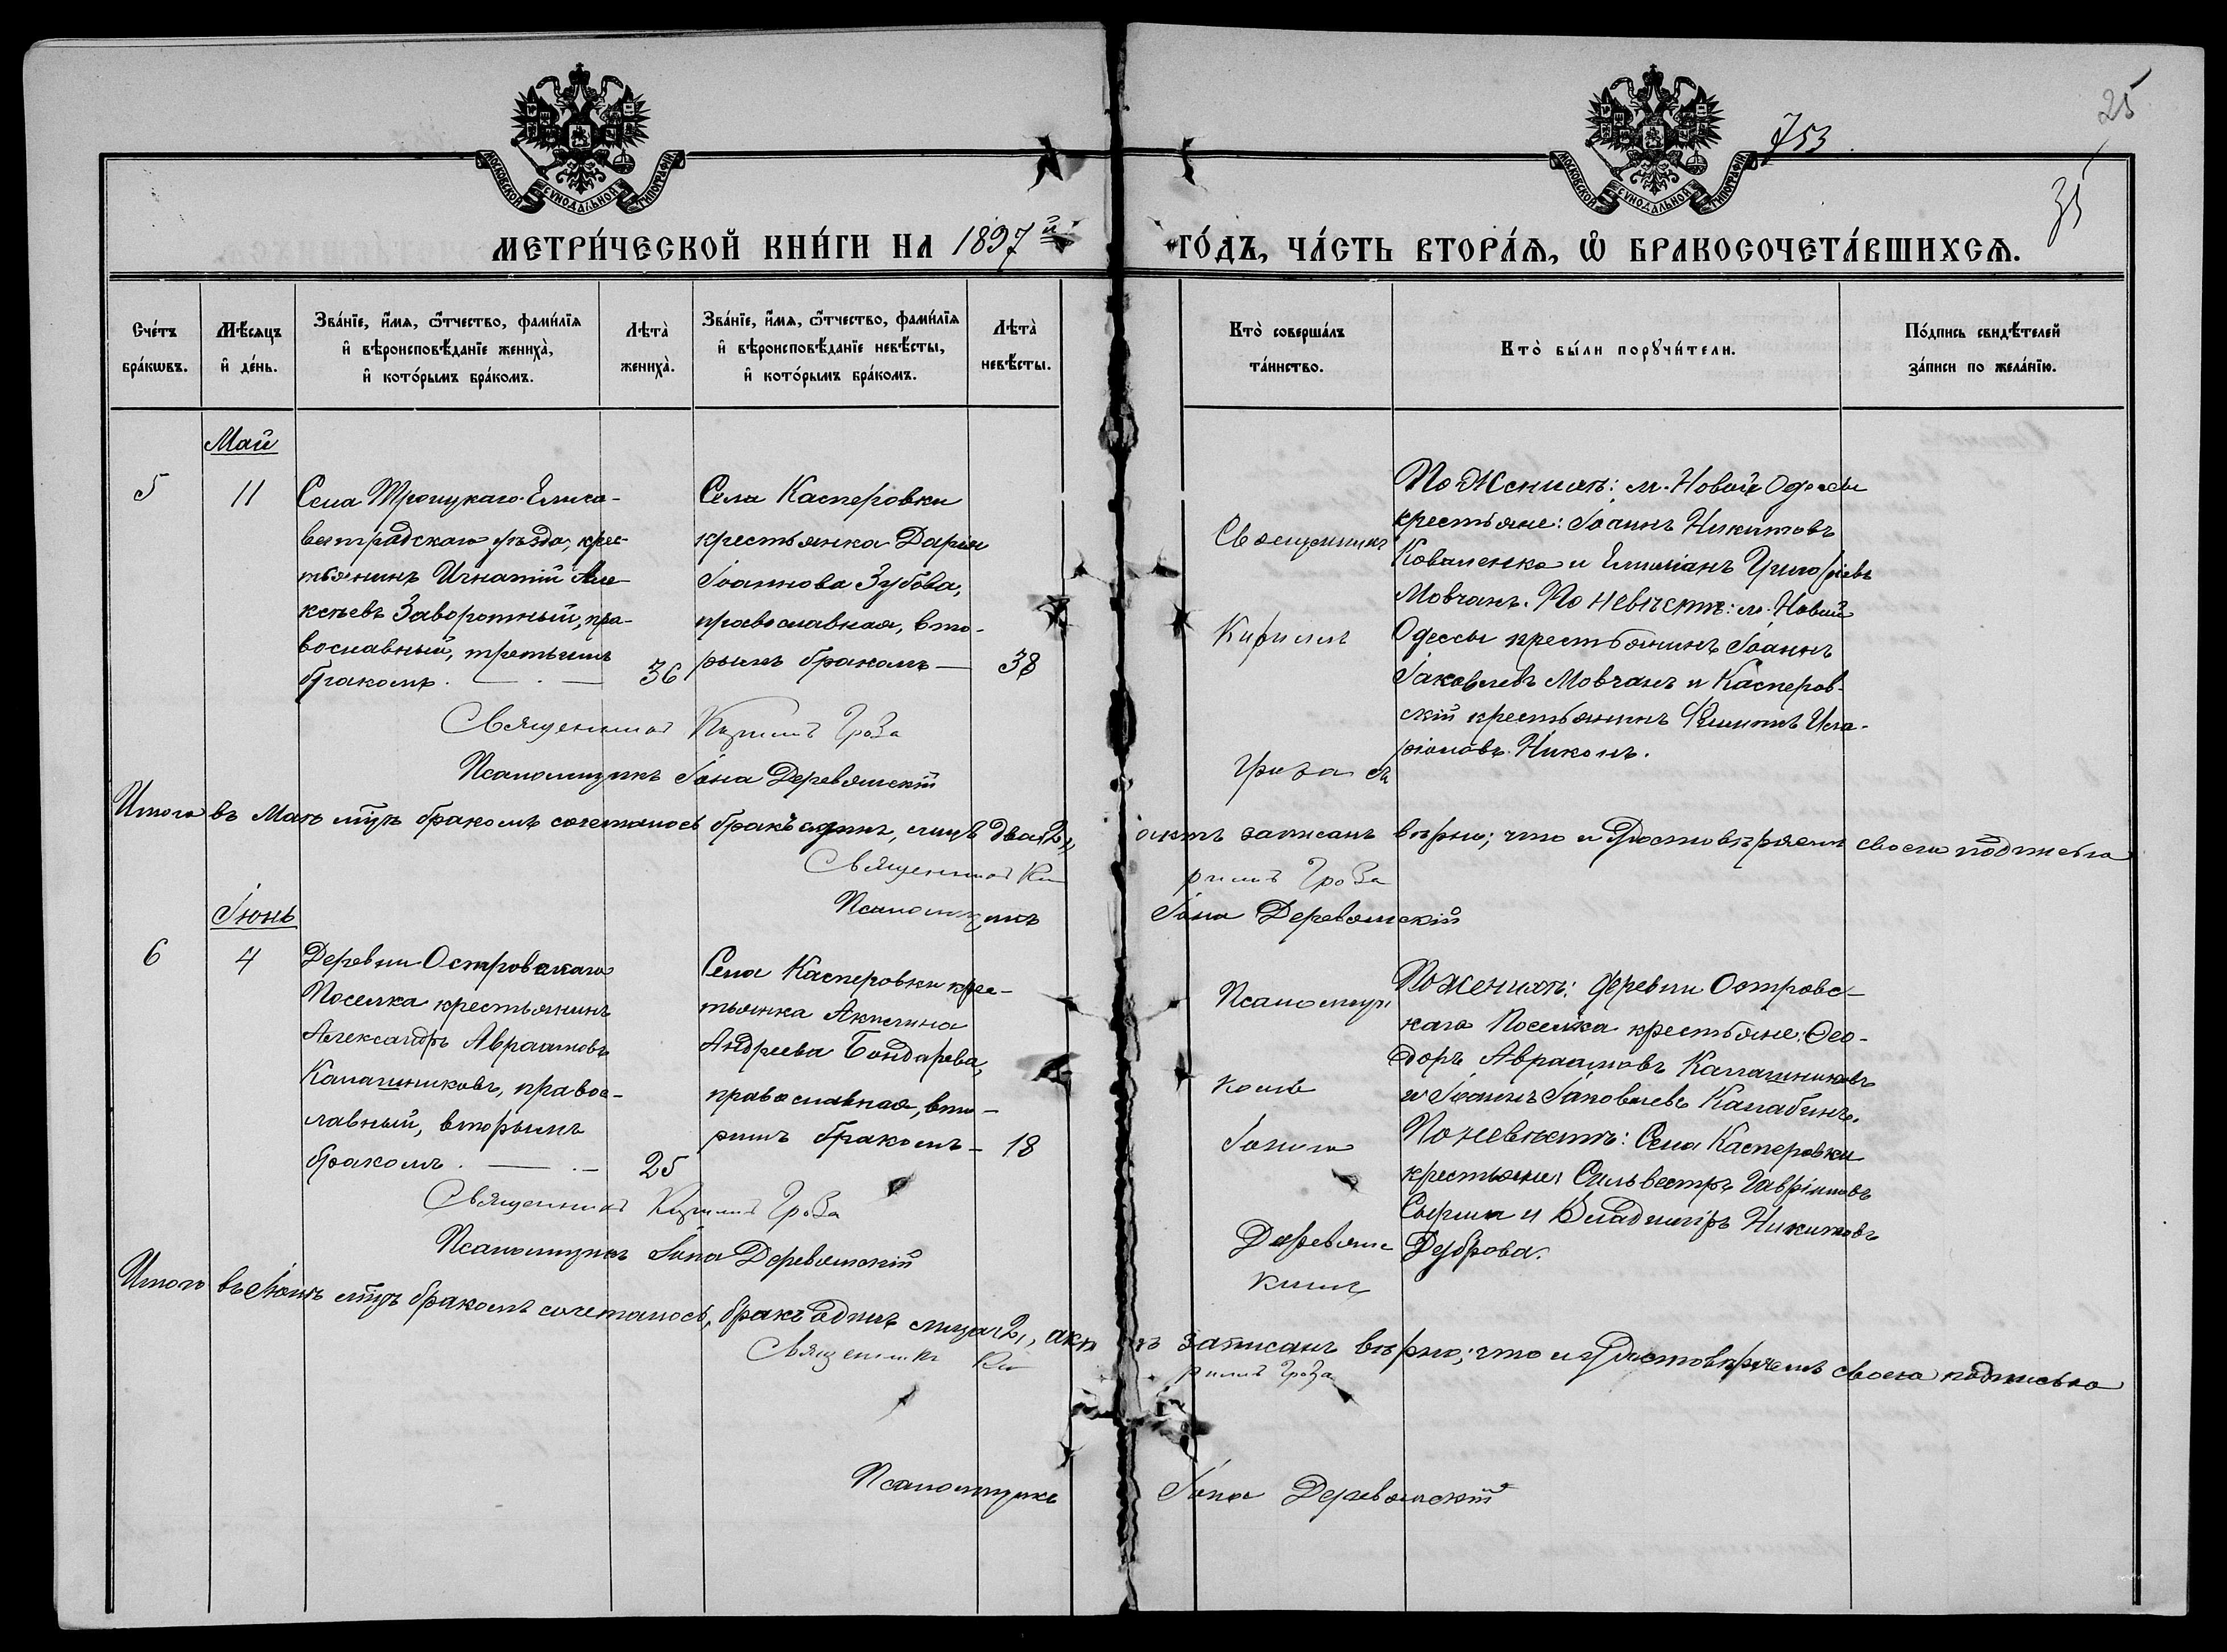 МОСКОВСКОЙ СѴНОДАЛЬНОЙ ТИПОГРАФІИ
МОСКОВСКОЙ СѴНОДАЛЬНОЙ ТИПОГРАФІИ
753
25
35
МЕТРИ́ЧЕСКОЙ КНИ́ГИ НА 1897й ГО́ДЪ, ЧА́СТЬ ВТОРА́Я, Ѡ҆ БРАКОСОЧЕТА́ВШИХСЯ.
Сче́тъ бра́кѡвъ.
Мѣ́сяцъ и҆ де́нь.
Зва́нїе, и҆́мя, ѻ҆́тчество, фами́лїя
и҆ вѣроисповѣ́данїе жениха̀,
и҆ кото́рымъ бра́комъ.
Лѣта̀ жениха̀.
Зва́нїе, и҆́мя, ѻ҆́тчество, фами́лїя
и҆ вѣроисповѣ́данїе невѣ́сты,
и҆ кото́рымъ бра́комъ.
Лѣта̀ невѣ́сты.
Кто̀ соверша́лъ та́инство.
Кто̀ бы́ли порꙋчи́тели.
По́дпись свидѣ́телей за́писи по жела́нїю.
Май
5
11
Села Троицкаго Елиса-
ветградскаго уѣзда, крес-
тьянинъ Игнатій Але-
ксѣевъ Заворотный, пра-
вославный, третьимъ
бракомъ.
36
Села Касперовки
крестьянка Дарья
Іоаннова Зубова,
православная, вто-
рымъ бракомъ
38
Священникъ
Кириллъ
Гроза съ
По Женихѣ: м. Новой Одессы
крестьяне: Іоаннъ Никитовъ
Коваленко и Емиліанъ Григоріевъ
Мовчанъ. По невѣстѣ: м. Новой
Одессы крестьянинъ Іоаннъ
Іаковлевъ Мовчанъ и Касперов-
скій крестьянинъ Филиппъ Ила-
ріоновъ Никонъ.
Священникъ Кириллъ Гроза
Псаломщикъ Іона Деревянскій
Итого въ Маѣ мцѣ бракомъ сочеталось бракъ одинъ, лицъ два (2), актъ записанъ вѣрно; что и удостовѣряемъ своею подписью
Священникъ Кириллъ Гроза
Псаломщикъ Іона Деревянскій
Іюнь
6
4
Деревни Островскаго
Поселка крестьянинъ
Александръ Авраамовъ
Калашниковъ, правос-
лавный, вторымъ
бракомъ.
25
Села Касперовки крес-
тьянка Акилина
Андреева Бондарева,
православная, вто-
рымъ бракомъ
18
Псаломщи
комъ
Іоною
Деревянс
кимъ
По женихѣ: деревни Островс-
каго Поселка крестьяне: Ѳео-
доръ Авраамовъ Калашниковъ
и Іоаннъ Іаковлевъ Калабинъ.
По невѣстѣ: Села Касперовки
крестьяне: Сильвестръ Гавріиловъ
и Владиміръ Никитовъ
Дуброва.
Священникъ Кириллъ Гроза
Псаломщикъ Іона Деревянскій
Итого въ Іюнѣ мцѣ бракомъ сочеталось, бракъ одинъ лица (2), актъ записанъ вѣрно; что и удостовѣряемъ своею подписью
Священникъ Кириллъ Гроза
Псаломщикъ Іона Деревянскій